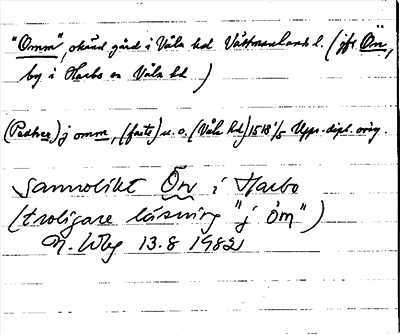 "Omm", okänd gård i Våla hd Västmanlands l. (jfr Ön,
by i Harbo sn Våla hd)
(Pedher) j omm, (faste) u.o. (Våla hd) 1518 1/5 Upps. dipl. orig.
Sannolikt Ön i Harbo
(troligare läsning "j öm")
13.8 1982